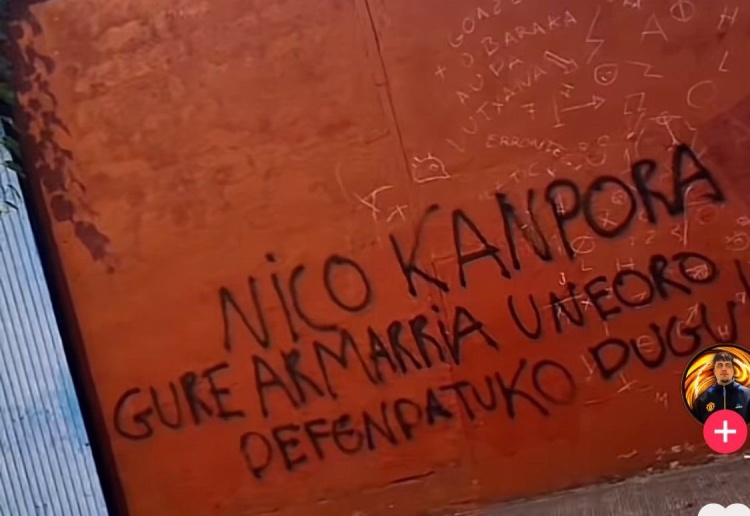 GOAZ
O BARAKA
AUPA
UTXANA
ERRONTE
NiCO KANPORA
GURE ARMARRiA UNEORO
DEFENDATUKO DUGU